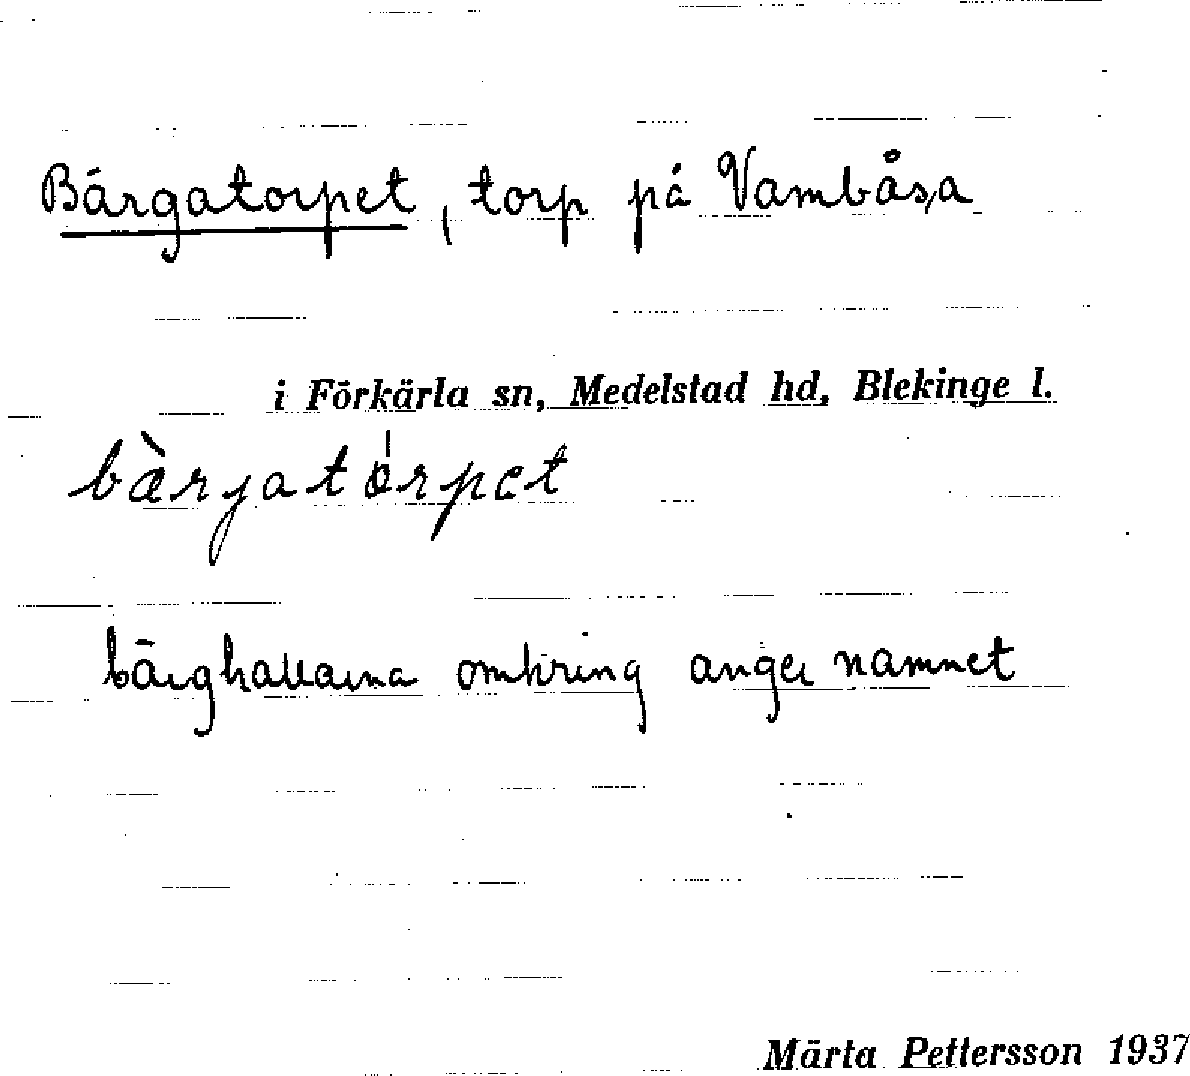 Bärgatorpet, torp på Vambåsa
i Förkärla sn, Medelstad hd, Blekinge l.
bæ̀rjatórpet
bärghallarna omkring anger namnet
Märta Pettersson 1937